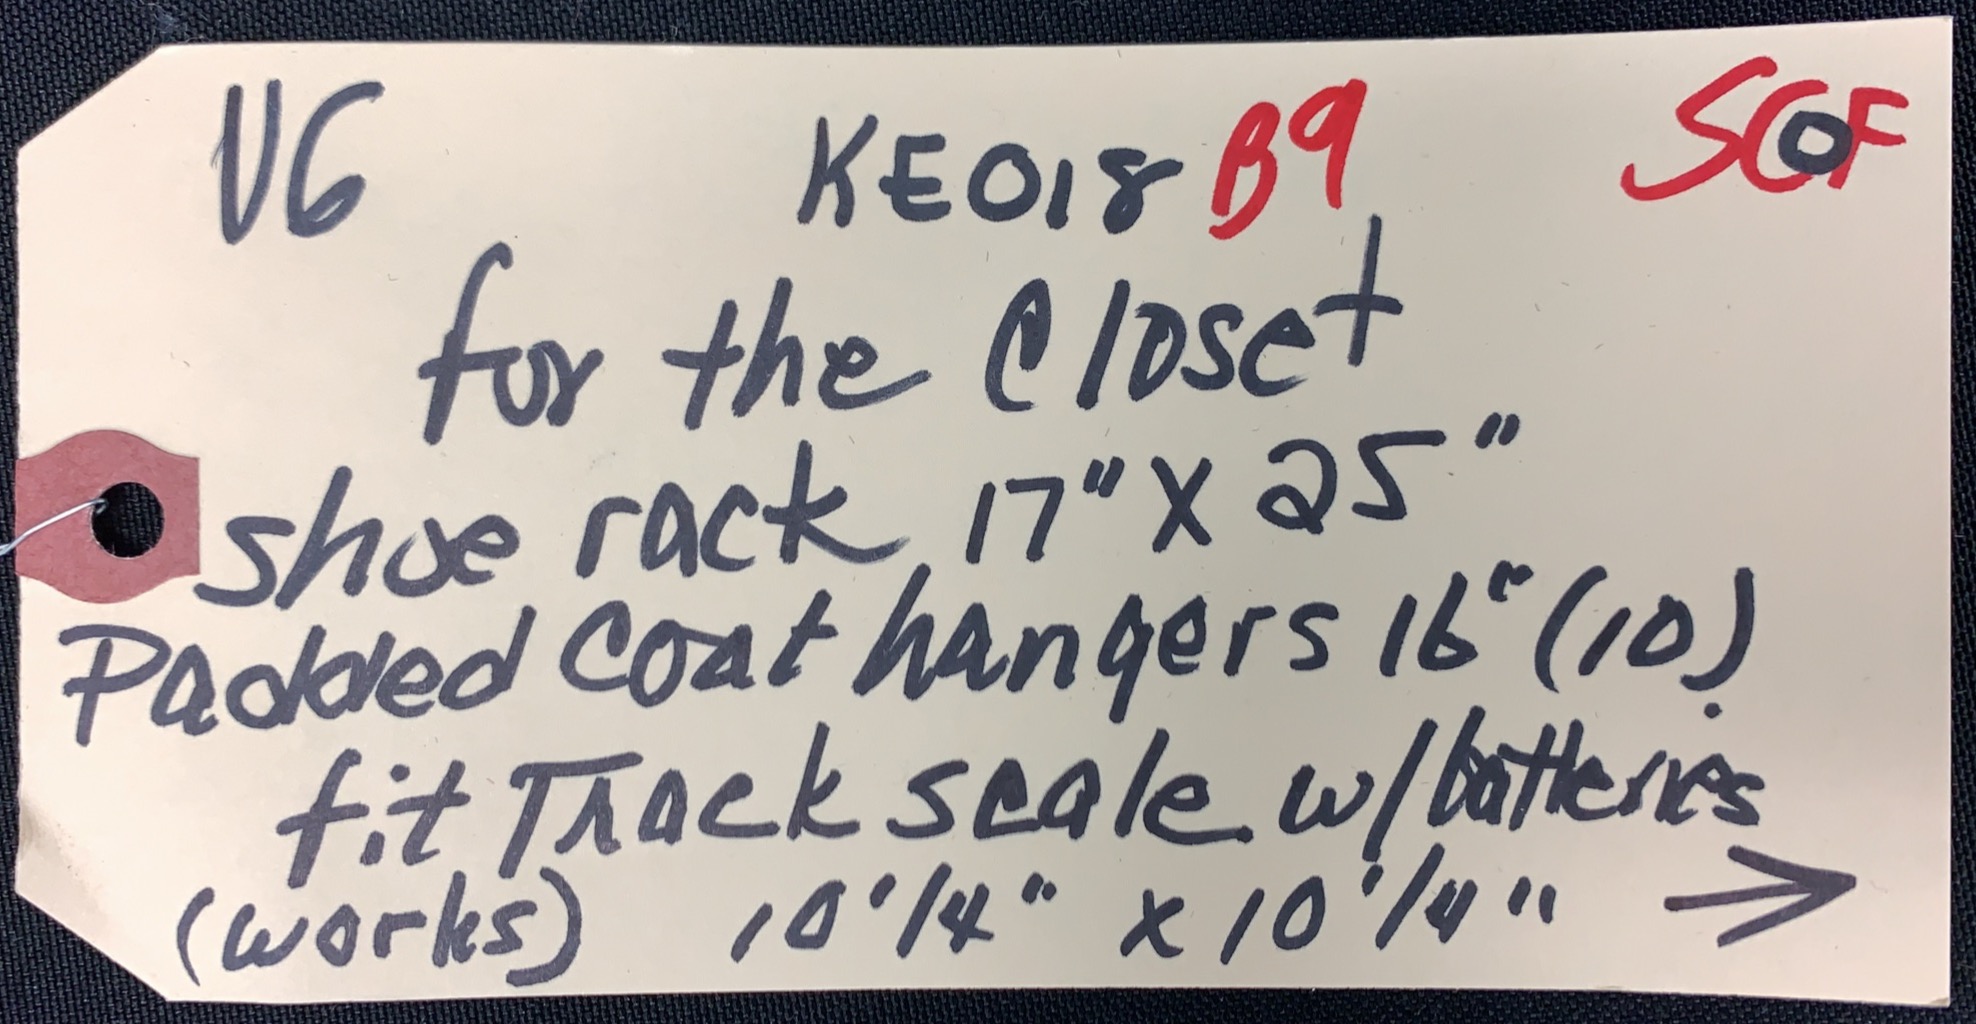 VG KE018 B9 SCOF
for the Closet
shoe rack 17" X 25"
Padded Coat hangers 16" (10)
fit Track scale w/batteries
(works) 10 1/4" x 10 1/4" →